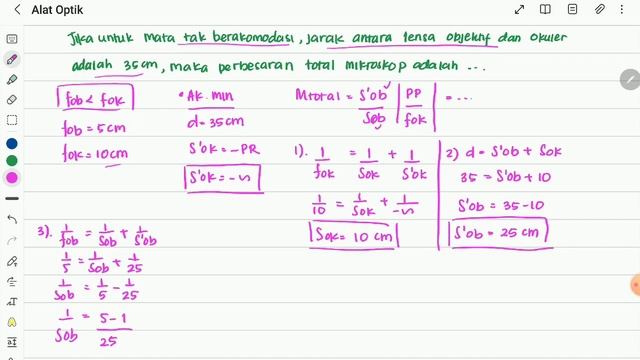 Alat Optik
Jika untuk mata tak berakomodasi, jarak antara lensa objektif dan okuler
adalah 35cm, maka perbesaran total mikroskop adalah ...
fob < fok
fob = 5cm
fok = 10cm
• Ak. min
d = 35cm
S'ok = -PR
S'ok = -∞
Mtotal = S'ob/Sob | PP/fok | = ...
1). 1/fok = 1/Sok + 1/S'ok
1/10 = 1/Sok + 1/-∞
Sok = 10 cm
2) d = S'ob + Sok
35 = S'ob + 10
S'ob = 35-10
S'ob = 25 cm
3). 1/fob = 1/Sob + 1/S'ob
1/5 = 1/Sob + 1/25
1/Sob = 1/5 - 1/25
1/Sob = 5-1/25